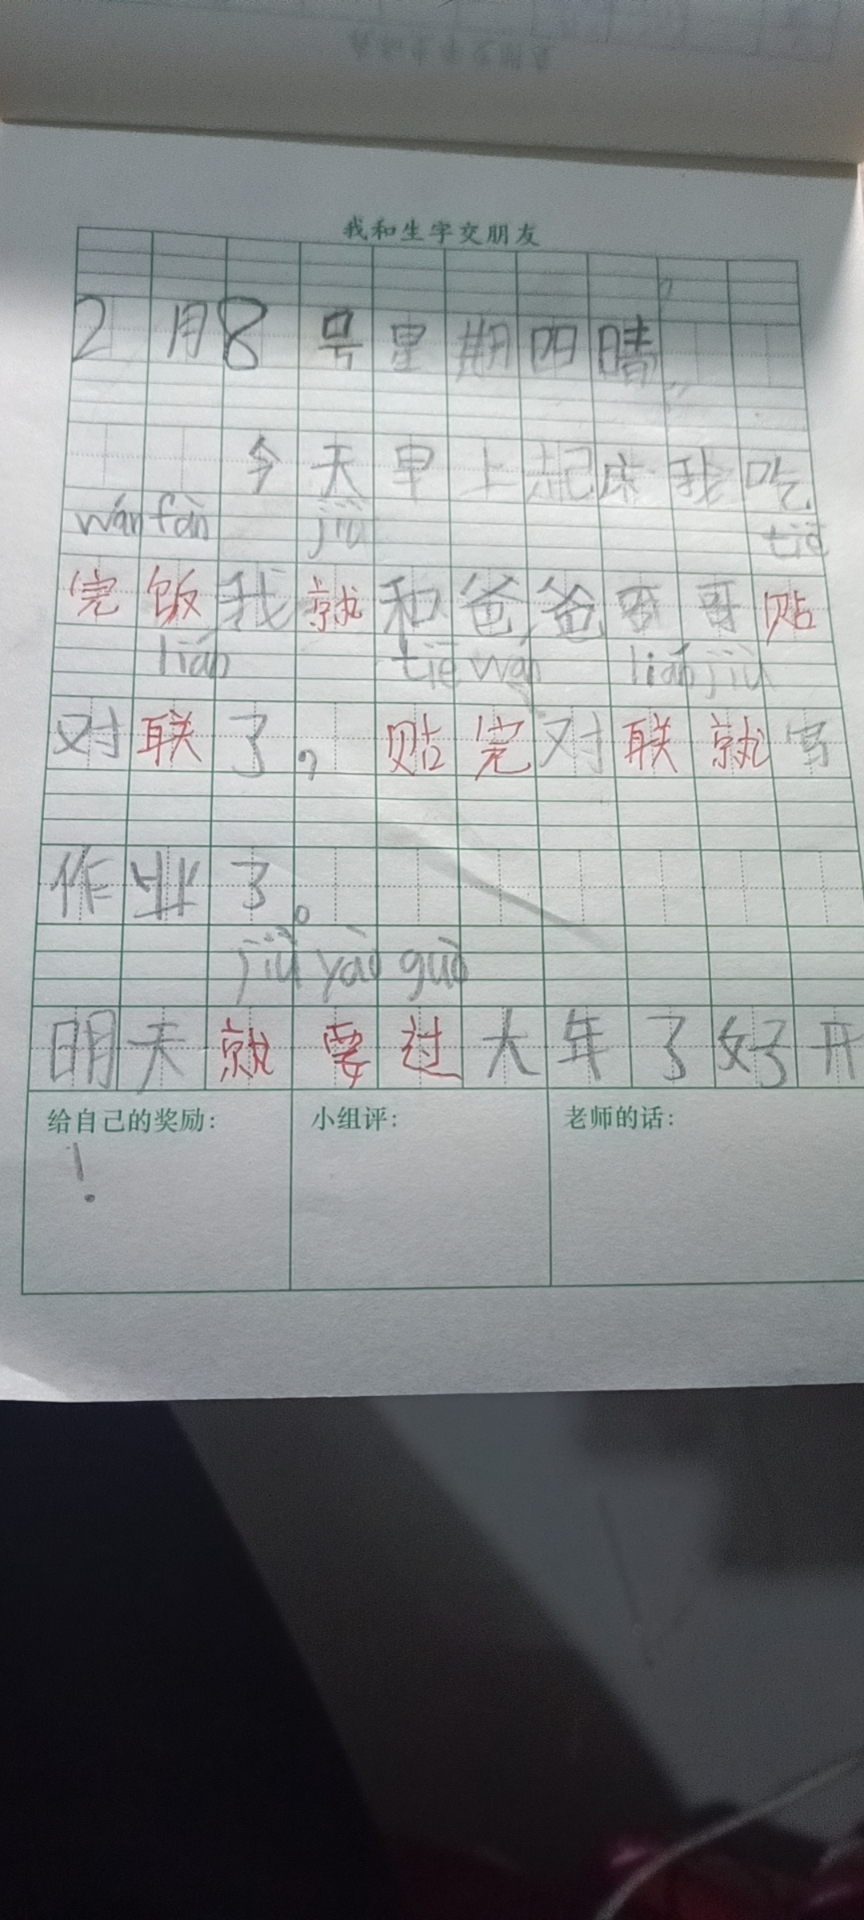 我和生字交朋友
2月8号星期四晴
今天早上起床我吃
wán fàn jiù tiē
完饭我就和爸爸哥哥贴
lián tiē wán lián jiù
对联了，贴完对联就写
作业了。
jiù yào guò
明天就要过大年了好开
给自己的奖励： 小组评： 老师的话：
！